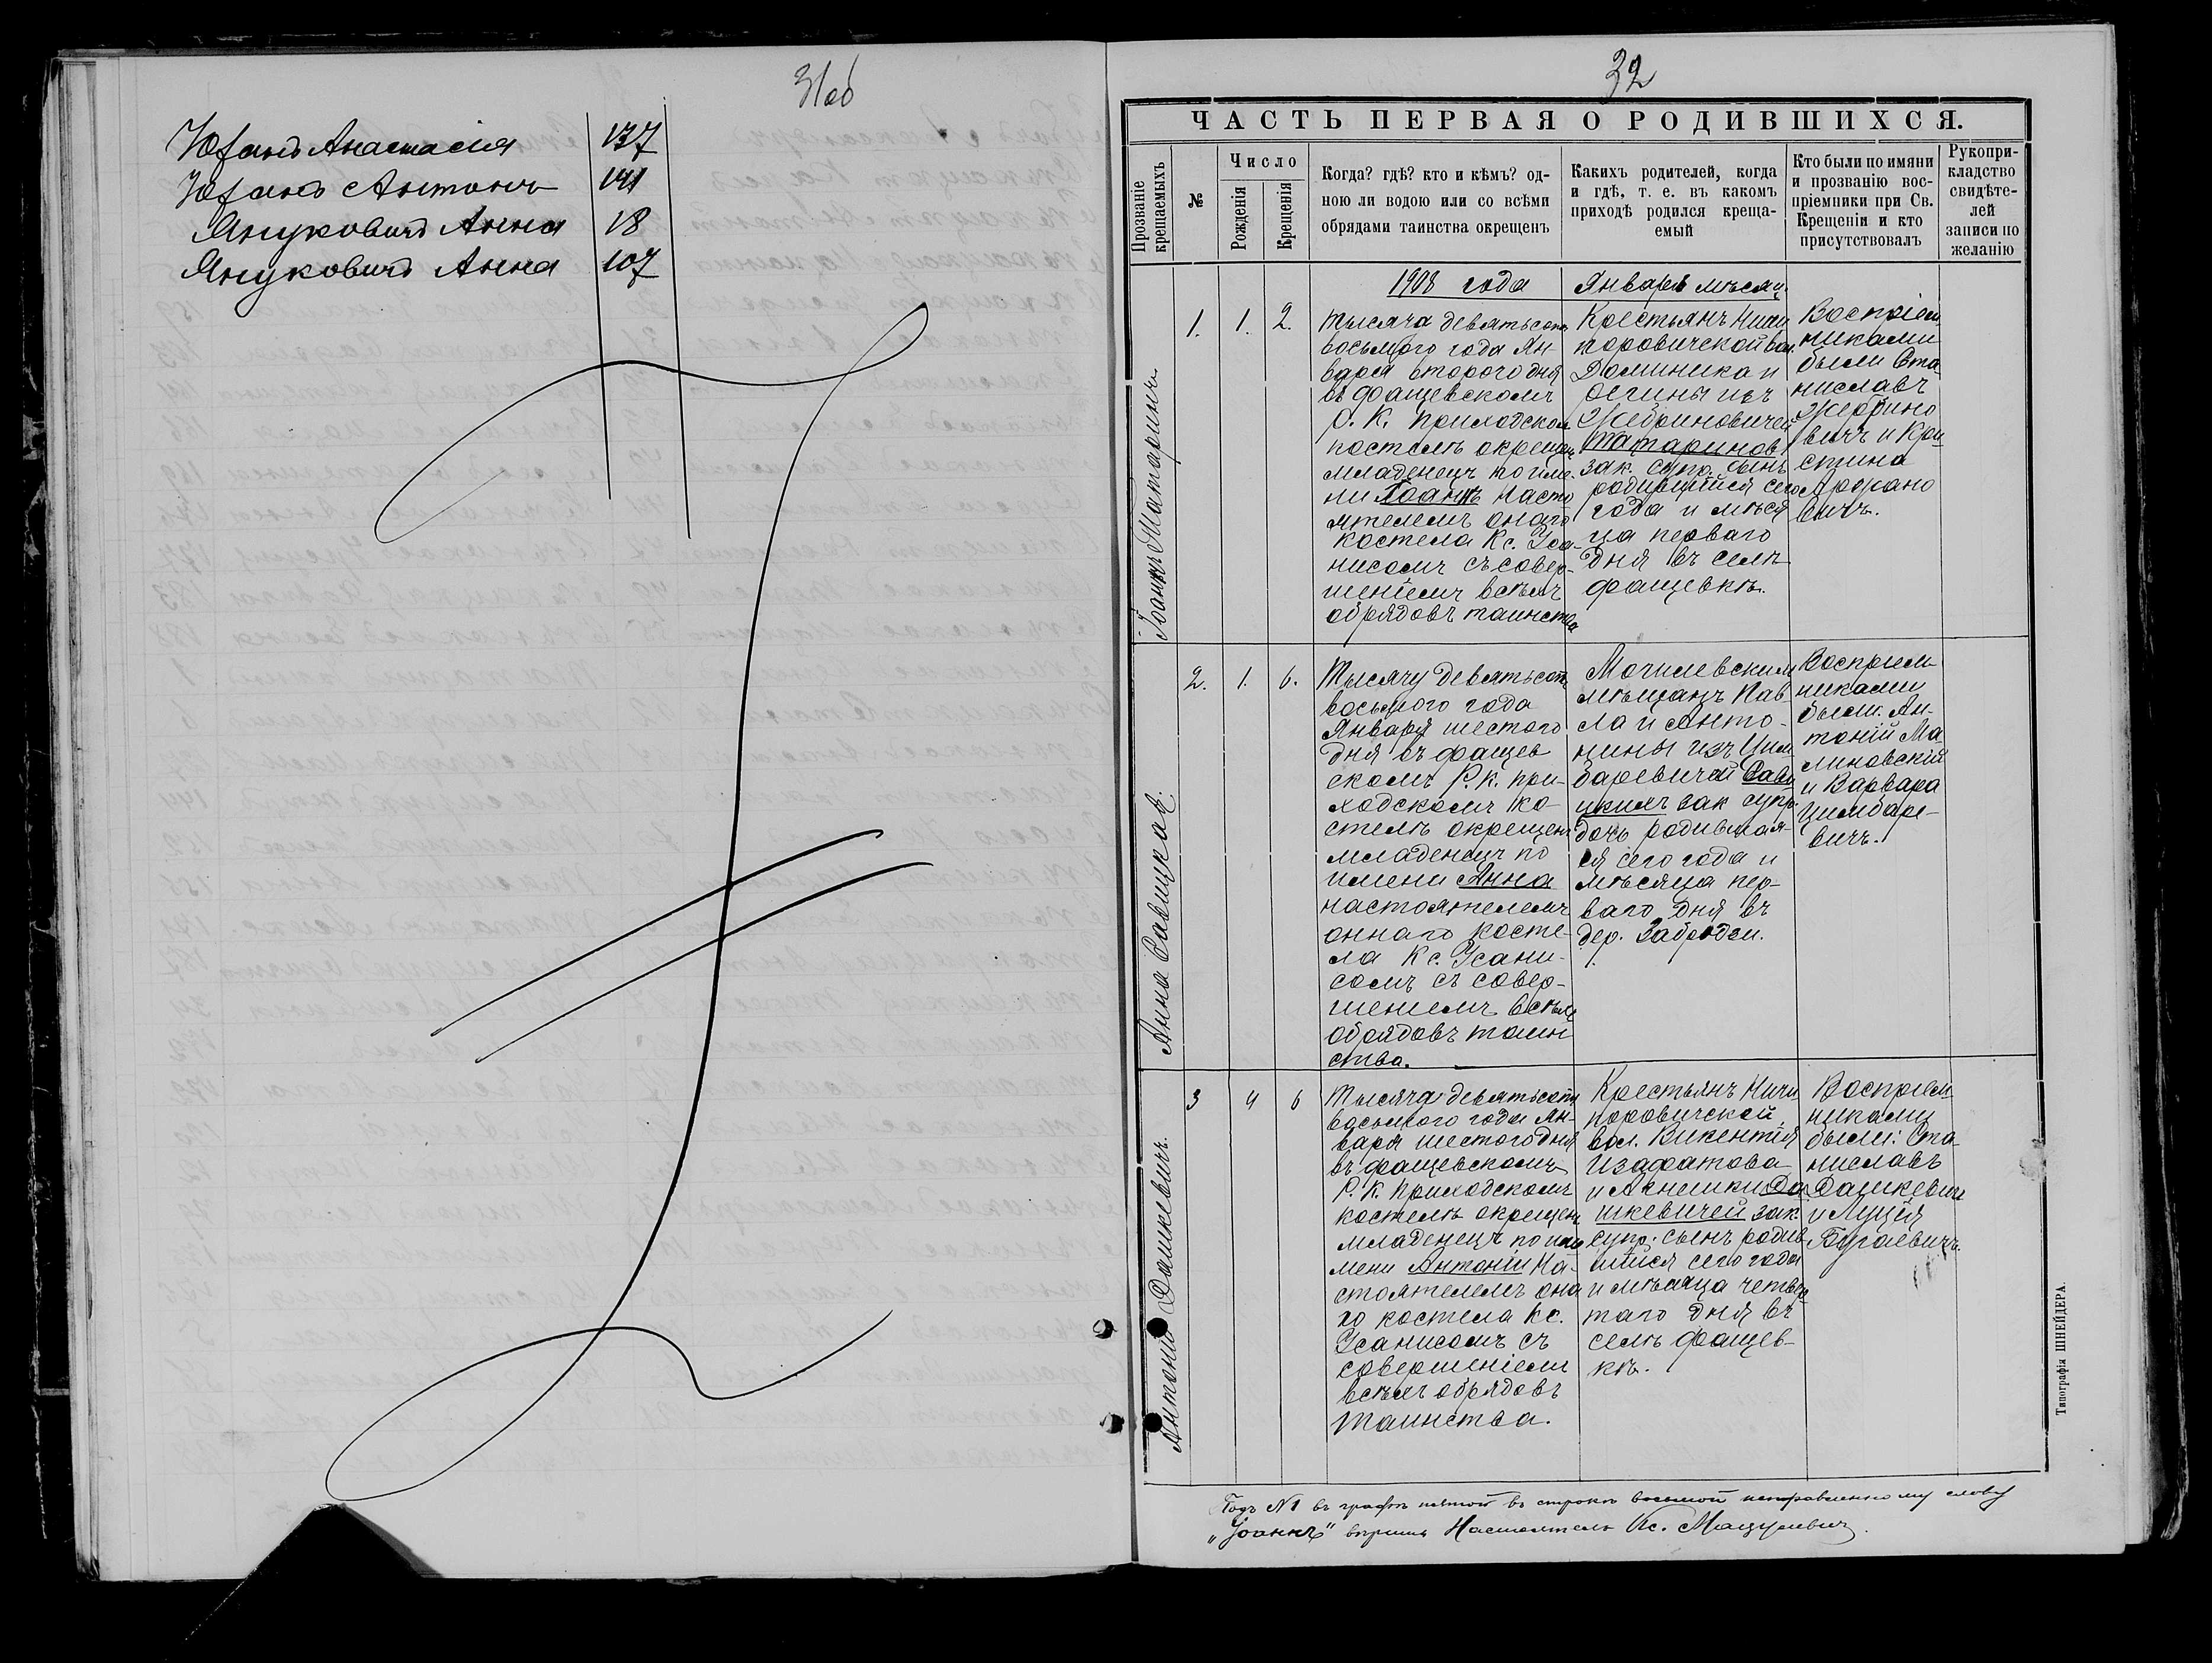 31об
Юханъ Анастасія 137
Юханъ Антонъ 141
Януковичъ Анна 18
Януковичъ Анна 107
32
ЧАСТЬ ПЕРВАЯ О РОДИВШИХСЯ.
Прозваніе крещаемыхъ
№
Число
Рожденія
Крещенія
Когда? гдѣ? кто и кѣмъ? од-
ною ли водою или со всѣми
обрядами таинства окрещенъ
Какихъ родителей, когда
и гдѣ, т. е. въ какомъ
приходѣ родился креща-
емый
Кто были по имяни
и прозванію вос-
пріемники при Св.
Крещеніи и кто
присутствовалъ
Рукопри-
кладство
свидѣте-
лей
записи по
желанію
1908 года Января мѣсяц
Іоаннъ Татаринъ
1. 1. 2.
Тысяча девятьсотъ
восьмого года Ян-
варя второго дня
въ Фащевскомъ
Р. К. Приходском
костелѣ окрещен
младенецъ по име-
ни Іоаннъ Насто
ятелемъ онаго
костела Кс. Уса-
нисомъ съ совер-
шеніемъ всѣхъ
обрядовъ таинства
Крестьянъ Ничи
поровичской вол.
Доминика и
изъ
Жебриновичей
Татаринов
зак. супр. сынъ
родившійся сего
года и мѣся
ца перваго
дня въ селѣ
Фащевкѣ.
Воспріем
никами
были Ста
ниславъ
и Кри
стина
вичъ.
Анна Савицкая.
2. 1. 6.
Тысячу девятьсотъ
восьмого года
Января шестого
дня въ Фащев
скомъ Р. К. при-
ходскомъ ко
стелѣ окрещен
младенецъ по
имени Анна
настоятелемъ
оннаго косте-
ла Кс. Усани-
сомъ съ совер-
шенiемъ всѣхъ
обрядовъ таин
ства.
Могилевскихъ
мѣщанъ Пав
ла и Анто-
нины изъ Цим
баревичей Сави
цкихъ зак супр.
дочь родившая-
ся сего года и
мѣсяца пер-
ваго дня въ
дер. Забродьи.
Воспріем
никами
были: Ан-
тоній Ма
линовскій
и Варвара
Цимбаре-
вичъ.
Антоній Дашкевичъ.
3 4 6
Тысяча девятьсотъ
восьмого года Ян-
варя шестого дня
въ Фащевскомъ
Р. К. Приходскомъ
костелѣ окрещен
младенецъ по
мени Антоній На-
стоятелемъ она
го костела Кс.
Усанисомъ съ
совершеніемъ
всѣхъ обрядовъ
таинства.
Крестьянъ Ничи
поровичской
вол. Викентія
и Агнешки Да
шкевичей зак.
супр. сынъ родив
шійся сего года
и мѣсяца четвер
таго дня въ
селѣ Фащев-
кѣ.
Воспріем
никами
были: Ста-
ниславъ
Дашкевичъ
и Луція
Бугаевичъ.
Подъ №1 въ графѣ пятой въ строкѣ восьмой исправленному слову
„Іоаннъ" вѣрить Настоятель Кс. Мацулевичъ.
Типографія ШНЕЙДЕРА